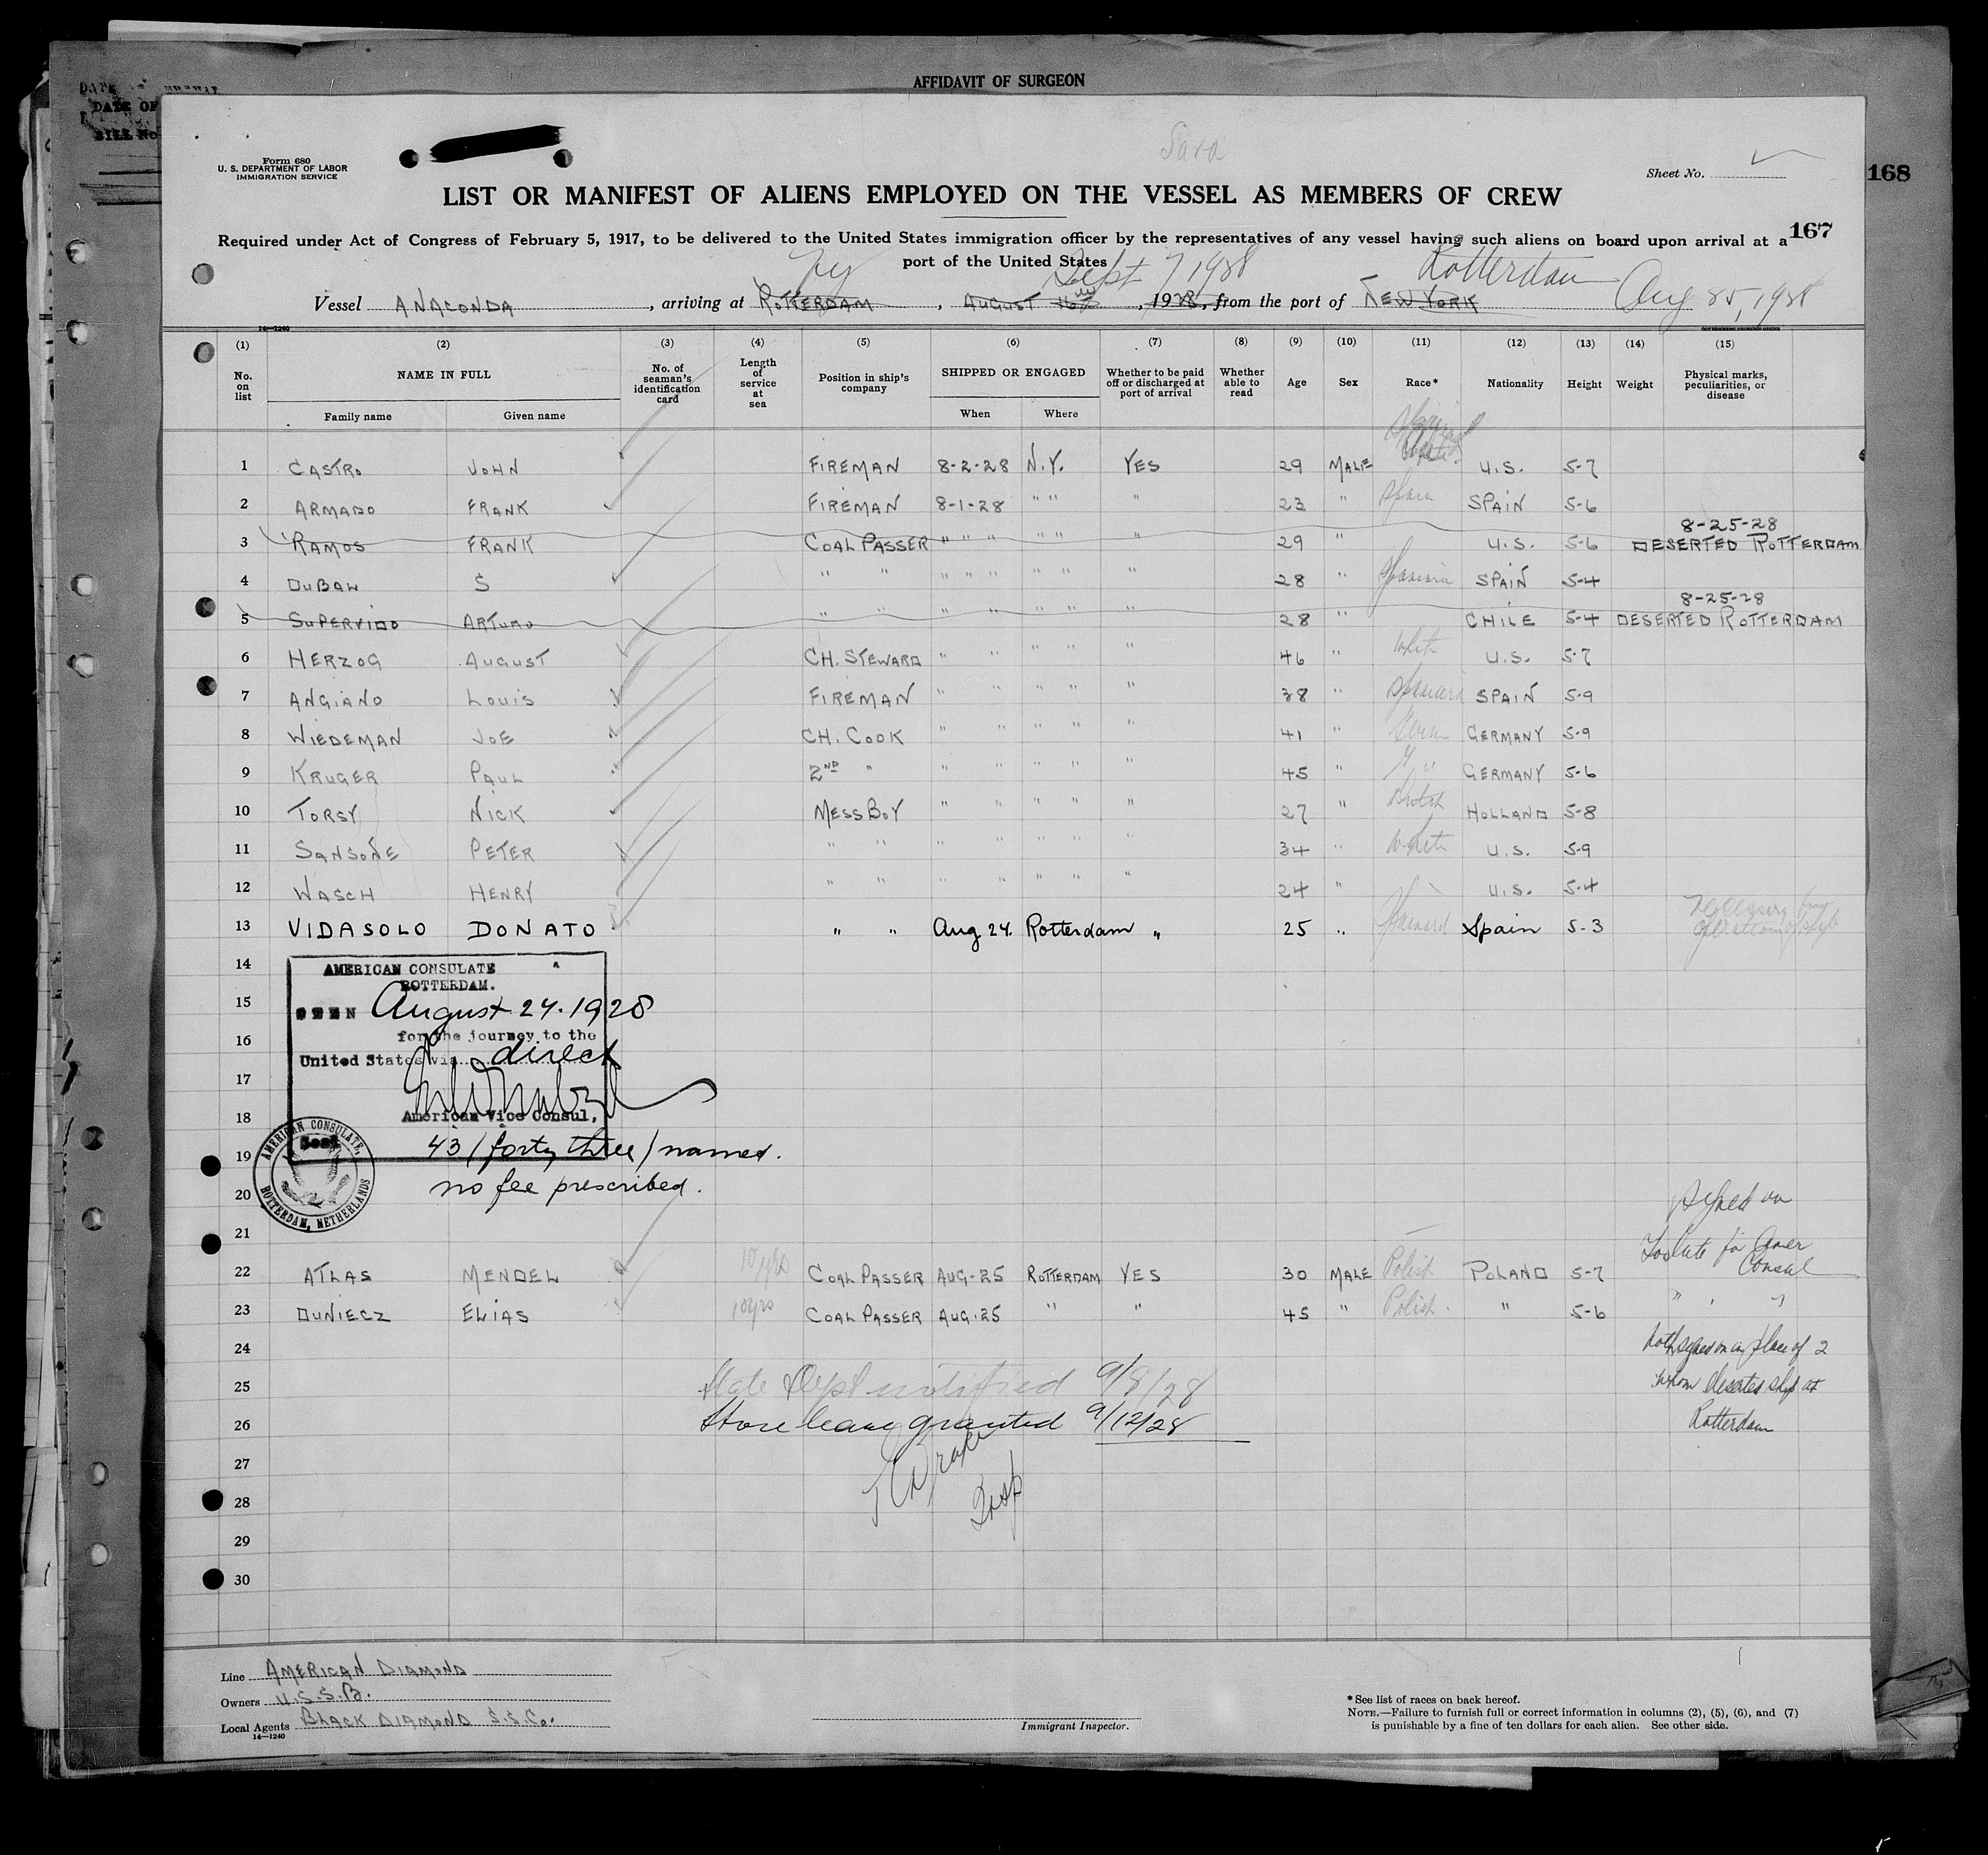 AFFIDAVIT OF SURGEON
DATE OF
BILL No
Form 680
U. S. DEPARTMENT OF LABOR
IMMIGRATION SERVICE
Sara
Sheet No.
168
LIST OR MANIFEST OF ALIENS EMPLOYED ON THE VESSEL AS MEMBERS OF CREW
167
Required under Act of Congress of February 5, 1917, to be delivered to the United States immigration officer by the representatives of any vessel having such aliens on board upon arrival at a
port of the United States
NY Sept 7 1928 Rotterdam
Vessel ANACONDA, arriving at ROTTERDAM, AUGUST 1928, from the port of NEW YORK Aug 25, 1928
14—1240
(1) (2) (3) (4) (5) (6) (7) (8) (9) (10) (11) (12) (13) (14) (15)
No. on list NAME IN FULL Family name Given name No. of seaman's identification card Length of service at sea Position in ship's company SHIPPED OR ENGAGED When Where Whether to be paid off or discharged at port of arrival Whether able to read Age Sex Race* Nationality Height Weight Physical marks, peculiarities, or disease
1 CASTRO JOHN FIREMAN 8-2-28 N.Y. YES 29 MALE U.S. 5-7
2 ARMADO FRANK FIREMAN 8-1-28 " " " 23 " Spain SPAIN 5-6
8-25-28
3 RAMOS FRANK COAL PASSER " " " " " " 29 " U.S. 5-6 DESERTED ROTTERDAM
4 DUBAW S " " " " " " " " 28 " SPAIN 5-4
8-25-28
5 SUPERVIDO ARTURO " " " " " " " 28 " CHILE 5-4 DESERTED ROTTERDAM
6 HERZOG AUGUST CH. STEWARD " " " " " 46 " White U.S. 5-7
7 ANGIANO LOUIS FIREMAN " " " " " 38 " Spaniard SPAIN 5-9
8 WIEDEMAN JOE CH. COOK " " " " " 41 " GERMANY 5-9
9 KRUGER PAUL 2ND " " " " " " 45 " GERMANY 5-6
10 TORSY NICK MESS BOY " " " " " 27 " Dutch HOLLAND 5-8
11 SANSONE PETER " " " " " " 34 " White U.S. 5-9
12 WASCH HENRY " " " " " " " 24 " " U.S. 5-4
13 VIDASOLO DONATO " " Aug 24. Rotterdam " 25 " Spaniard Spain 5-3 Necessary for operation of ship
14
15
16
17
18
19
20
21
AMERICAN CONSULATE
ROTTERDAM.
SEEN August 24. 1928
for the journey to the
United States via direct
American Vice Consul,
Seal
AMERICAN CONSULATE, ROTTERDAM, NETHERLANDS
43 / forty three / names.
no fee prescribed.
Signed on
Too late for Amer
Consul
22 ATLAS MENDEL 10 yrs COAL PASSER AUG-25 ROTTERDAM YES 30 MALE Polish POLAND 5-7
23 DUNIECZ ELIAS 10 yrs COAL PASSER AUG-25 " " 45 " Polish " 5-6 " " "
24 both signed on in place of 2
25 State Dept notified 9/8/28 whom deserted ship at
26 Shore leave granted 9/12/28 Rotterdam
Insp
27
28
29
30
Line AMERICAN DIAMOND
Owners U.S.S.B.
Local Agents BLACK DIAMOND S.S.Co.
14—1240
Immigrant Inspector.
*See list of races on back hereof.
NOTE.—Failure to furnish full or correct information in columns (2), (5), (6), and (7)
is punishable by a fine of ten dollars for each alien. See other side.